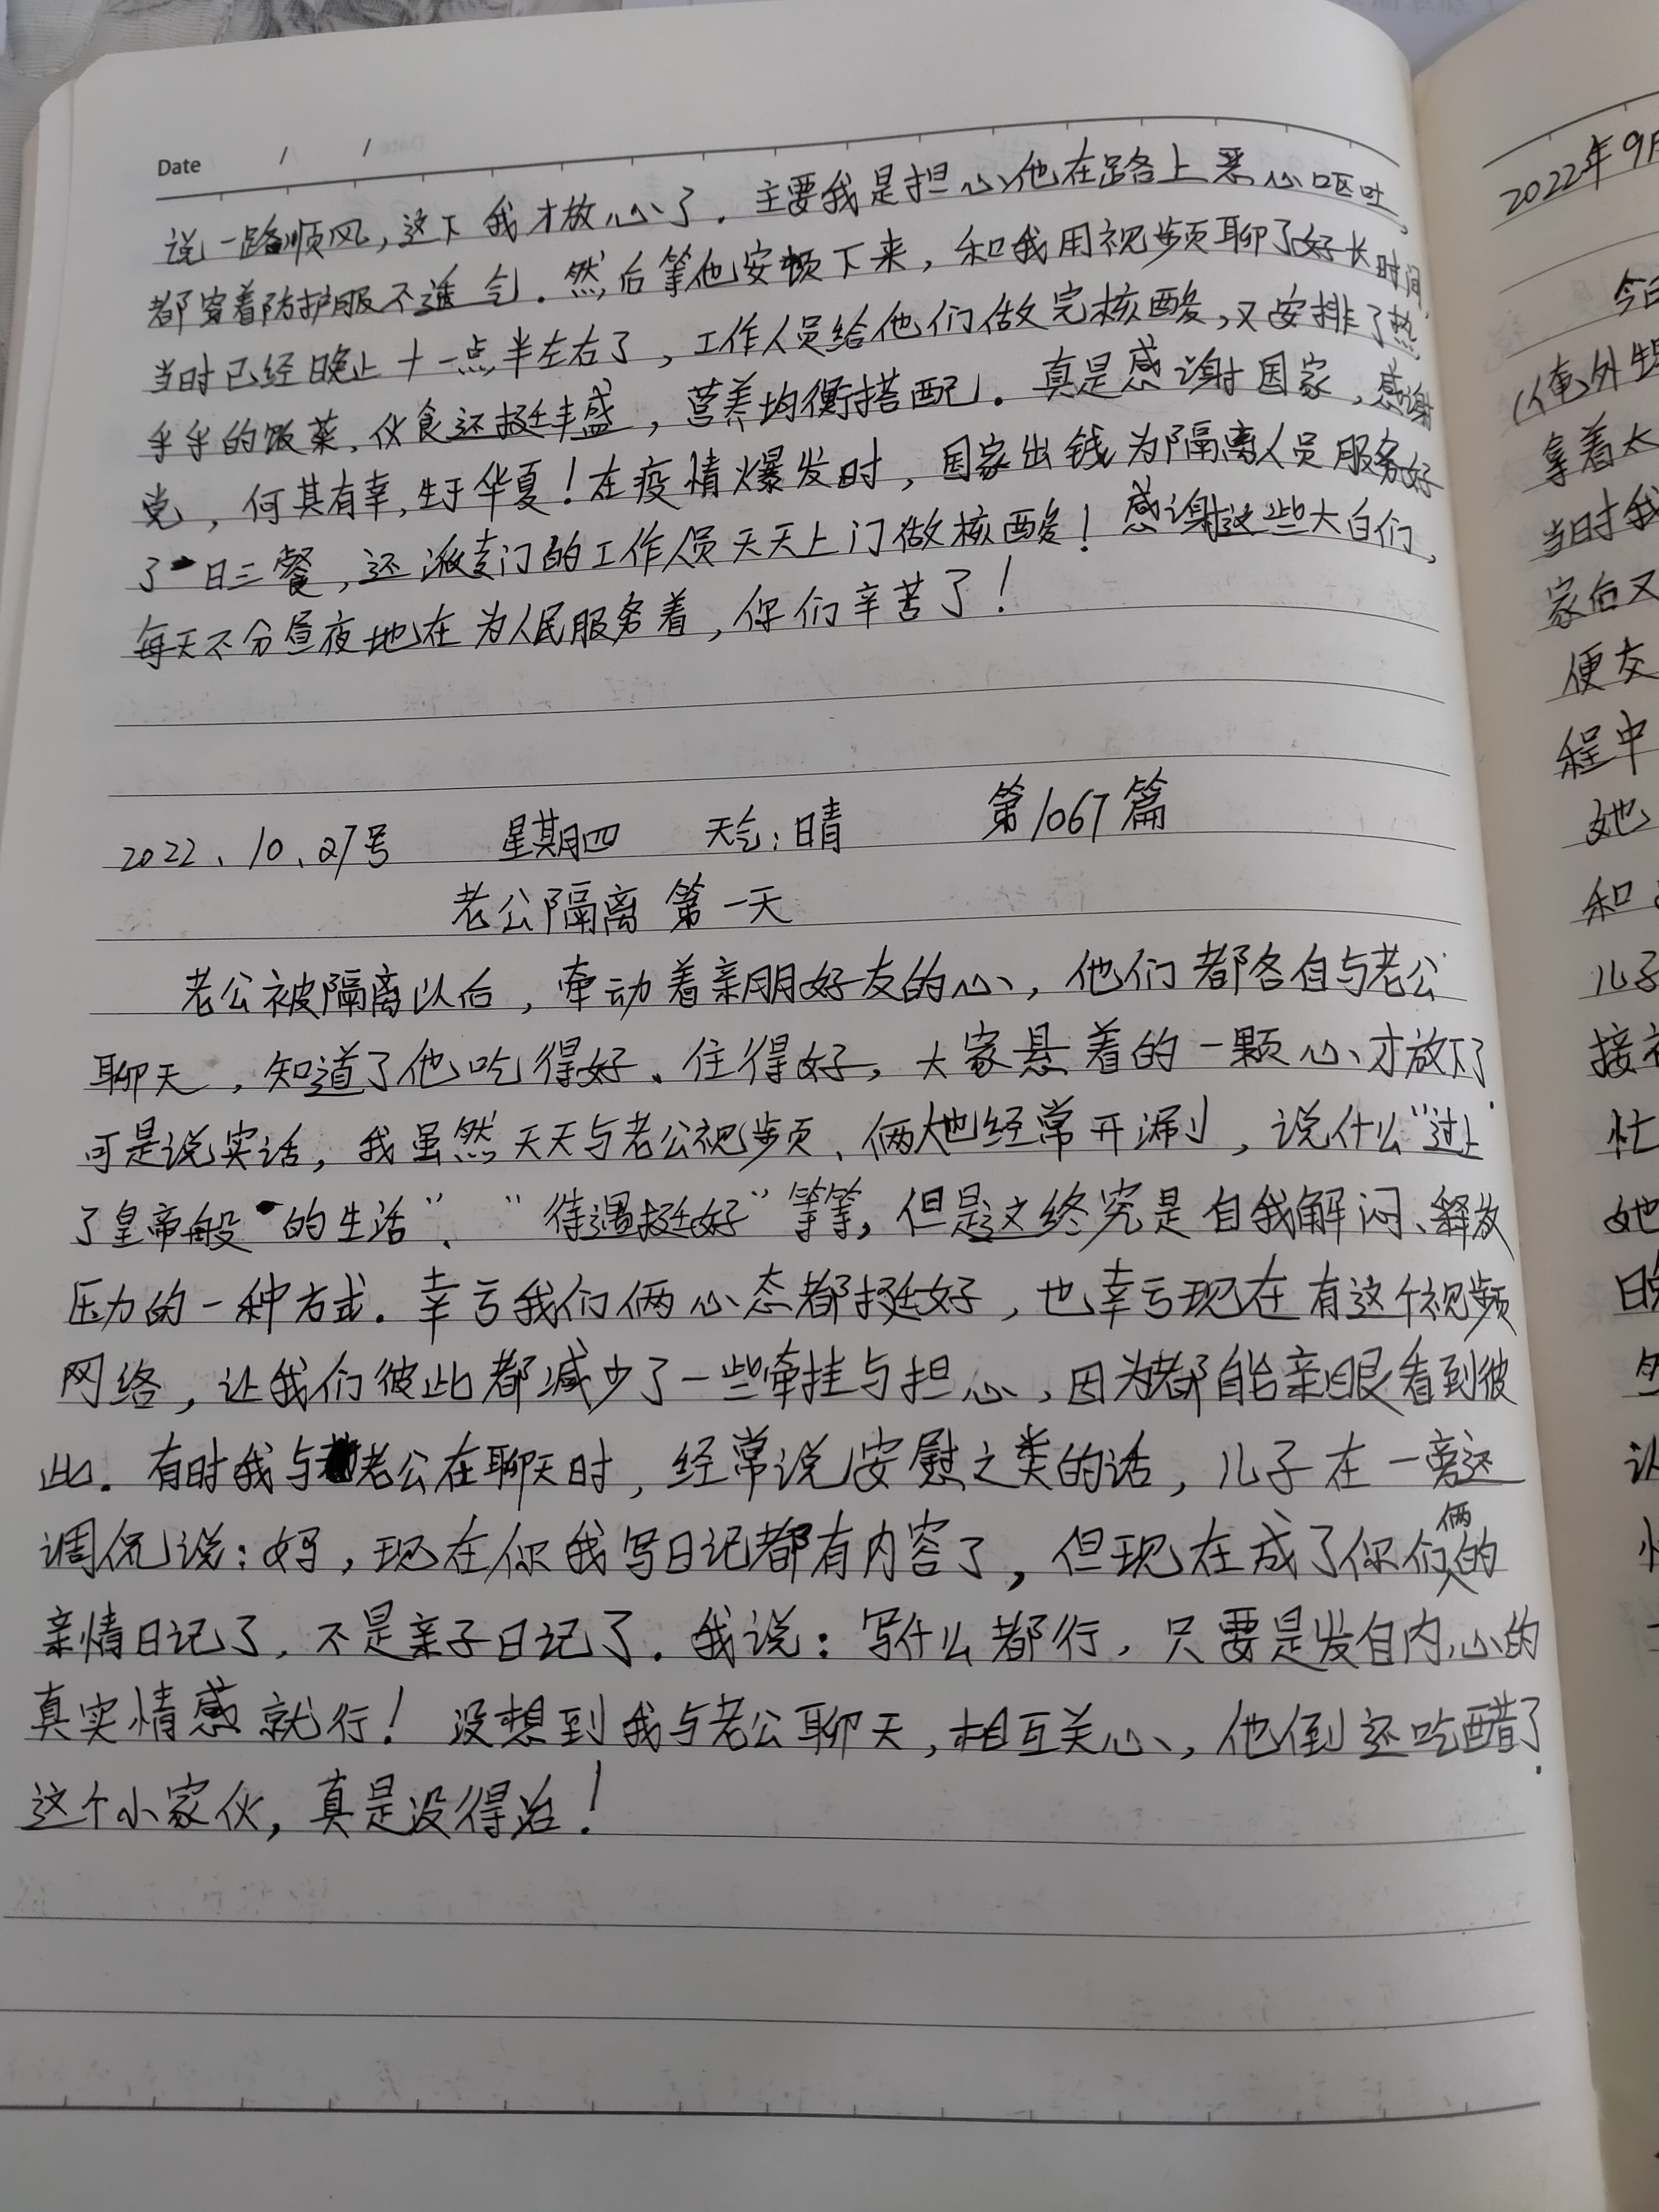 Date / /
说一路顺风,这下我才放心了.主要我是担心他在路上恶心呕吐,
都穿着防护服不透气.然后等他安顿下来,和我用视频聊了好长时间,
当时已经晚上十一点半左右了,工作人员给他们做完核酸,又安排了热
乎乎的饭菜,伙食还挺丰盛,营养均衡搭配.真是感谢国家,感谢
党,何其有幸,生于华夏!在疫情爆发时,国家出钱为隔离人员服务好
了一日三餐,还派专门的工作人员天天上门做核酸!感谢这些大白们,
每天不分昼夜地在为人民服务着,你们辛苦了!
2022、10、27号 星期四 天气:晴 第1067篇
老公隔离第一天
老公被隔离以后,牵动着亲朋好友的心,他们都各自与老公
聊天,知道了他吃得好、住得好,大家悬着的一颗心才放下了.
可是说实话,我虽然天天与老公视频、俩人也经常开涮,说什么“过上
了皇帝般的生活”、“待遇挺好”等等,但是这终究是自我解闷、释放
压力的一种方式.幸亏我们俩心态都挺好,也幸亏现在有这个视频
网络,让我们彼此都减少了一些牵挂与担心,因为都能亲眼看到彼
此.有时我与老公在聊天时,经常说安慰之类的话,儿子在一旁还
调侃说:妈,现在你我写日记都有内容了,但现在成了你们俩的
亲情日记了,不是亲子日记了.我说:写什么都行,只要是发自内心的
真实情感就行!没想到我与老公聊天,相互关心,他倒还吃醋了.
这个小家伙,真是没得治!
2022年9月
今日
(俺)外甥
拿着太
当时我
家后又
便交
程中
她
和
儿子
忙
她